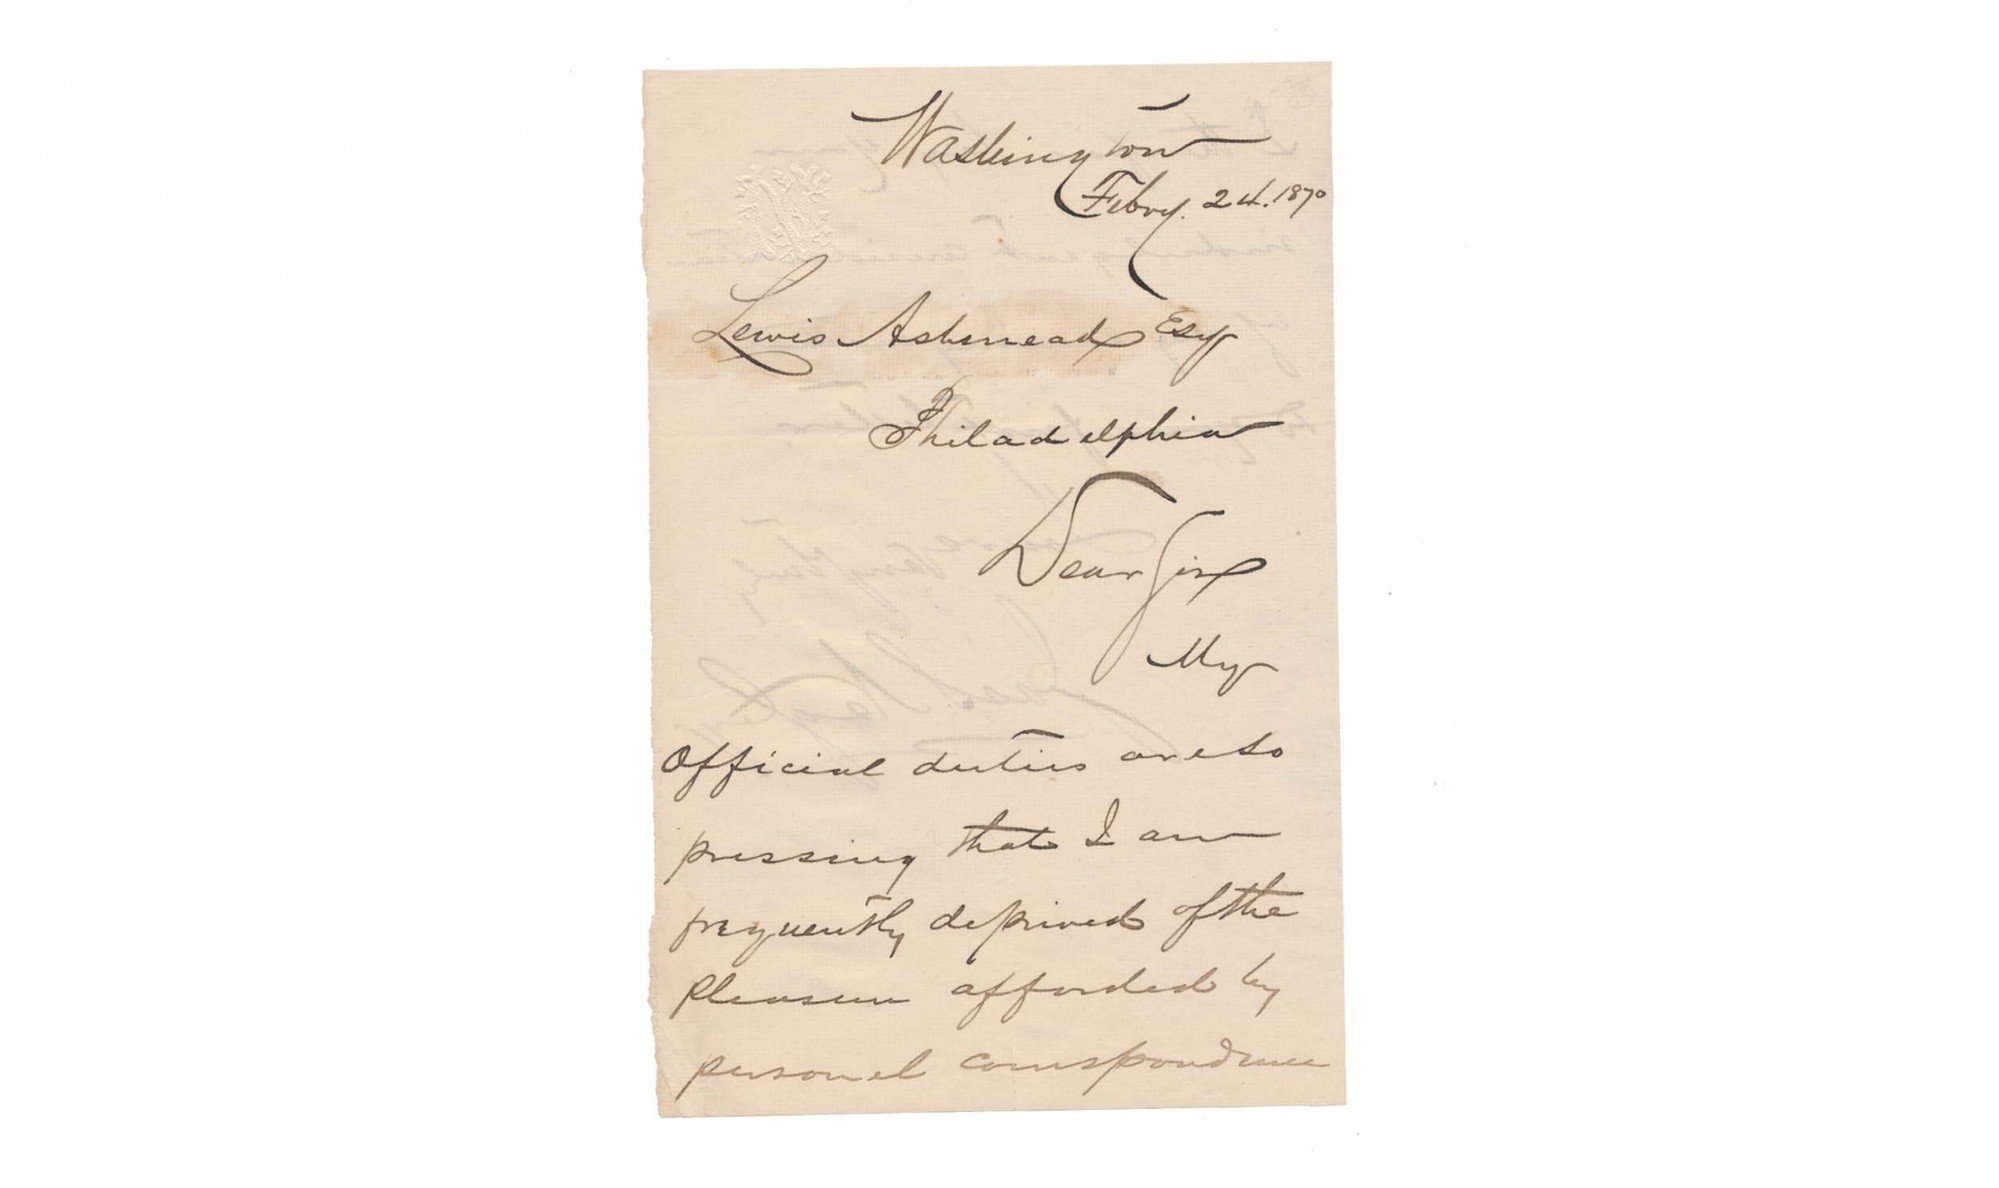 Washington
Febry. 24. 1870
Lewis Ashmead Esq
Philadelphia
Dear Sir
My
Official duties are so
pressing that I am
frequently deprived of the
pleasure afforded by
personel correspondence